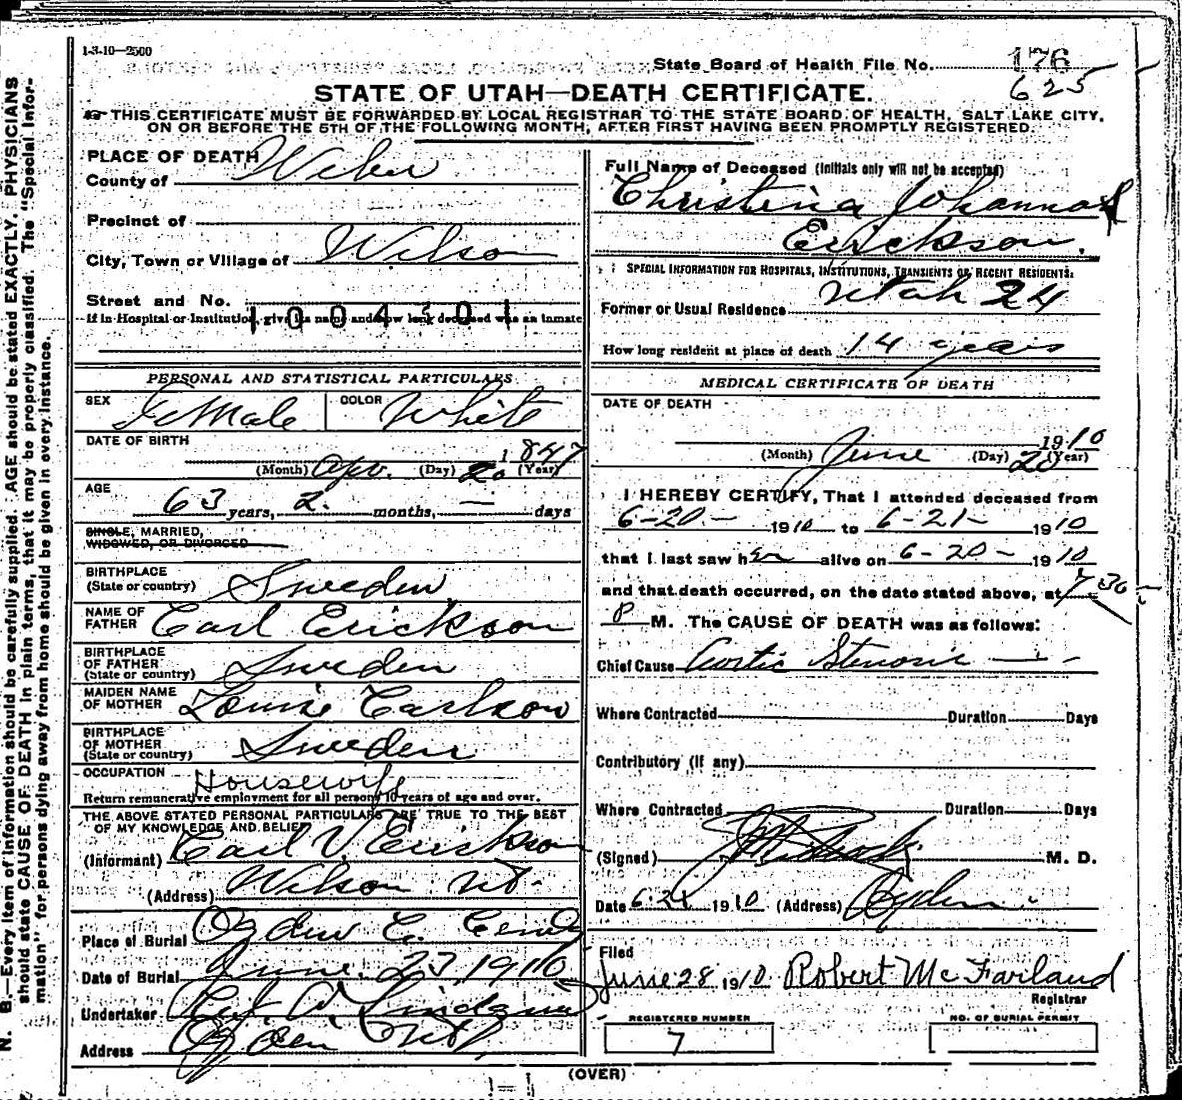 1-3-10—2500
State Board of Health File No. 176
625
STATE OF UTAH—DEATH CERTIFICATE.
THIS CERTIFICATE MUST BE FORWARDED BY LOCAL REGISTRAR TO THE STATE BOARD OF HEALTH, SALT LAKE CITY,
ON OR BEFORE THE 5TH OF THE FOLLOWING MONTH, AFTER FIRST HAVING BEEN PROMPTLY REGISTERED.
PLACE OF DEATH
County of Weber
Precinct of
City, Town or Village of Wilson
Street and No.
1004301
If in Hospital or Institution, give its name and how long deceased was an inmate
PERSONAL AND STATISTICAL PARTICULARS
SEX Female COLOR White
DATE OF BIRTH
1847
(Month) Apr. (Day) 20 (Year)
AGE
63 years, 2. months, — days
SINGLE, MARRIED,
WIDOWED, OR DIVORCED
BIRTHPLACE
(State or country) Sweden
NAME OF
FATHER Carl Erickson
BIRTHPLACE
OF FATHER
(State or country) Sweden
MAIDEN NAME
OF MOTHER Louise Carlson
BIRTHPLACE
OF MOTHER
(State or country) Sweden
OCCUPATION Housewife
Return remunerative employment for all persons 10 years of age and over.
THE ABOVE STATED PERSONAL PARTICULARS ARE TRUE TO THE BEST
OF MY KNOWLEDGE AND BELIEF
(Informant) Carl V. Erickson
(Address) Wilson Ut.
Place of Burial Ogden C. Cemty
Date of Burial June. 23 1910
Undertaker
Address Ogden Ut
Full Name of Deceased (Initials only will not be accepted)
Christina Johanna
Erickson.
SPECIAL INFORMATION FOR HOSPITALS, INSTITUTIONS, TRANSIENTS OR RECENT RESIDENTS:
Former or Usual Residence Utah 24
How long resident at place of death 14 years
MEDICAL CERTIFICATE OF DEATH
DATE OF DEATH
1910
(Month) June (Day) 20 (Year)
I HEREBY CERTIFY, That I attended deceased from
6-20- 1910 to 6-21- 1910
that I last saw her alive on 6-20- 1910
and that death occurred, on the date stated above, at 7 30
M. The CAUSE OF DEATH was as follows:
Chief Cause Aortic Stenosis
Where Contracted Duration Days
Contributory (if any)
Where Contracted Duration Days
(Signed) M. D.
Date 1910 (Address) Ogden
Filed
June 28 1910 Robert McFarland
Registrar
REGISTERED NUMBER
7
NO. OF BURIAL PERMIT
(OVER)
N. B.—Every item of information should be carefully supplied. AGE should be stated EXACTLY. PHYSICIANS
should state CAUSE OF DEATH in plain terms, that it may be properly classified. The "Special Infor-
mation" for persons dying away from home should be given in every instance.